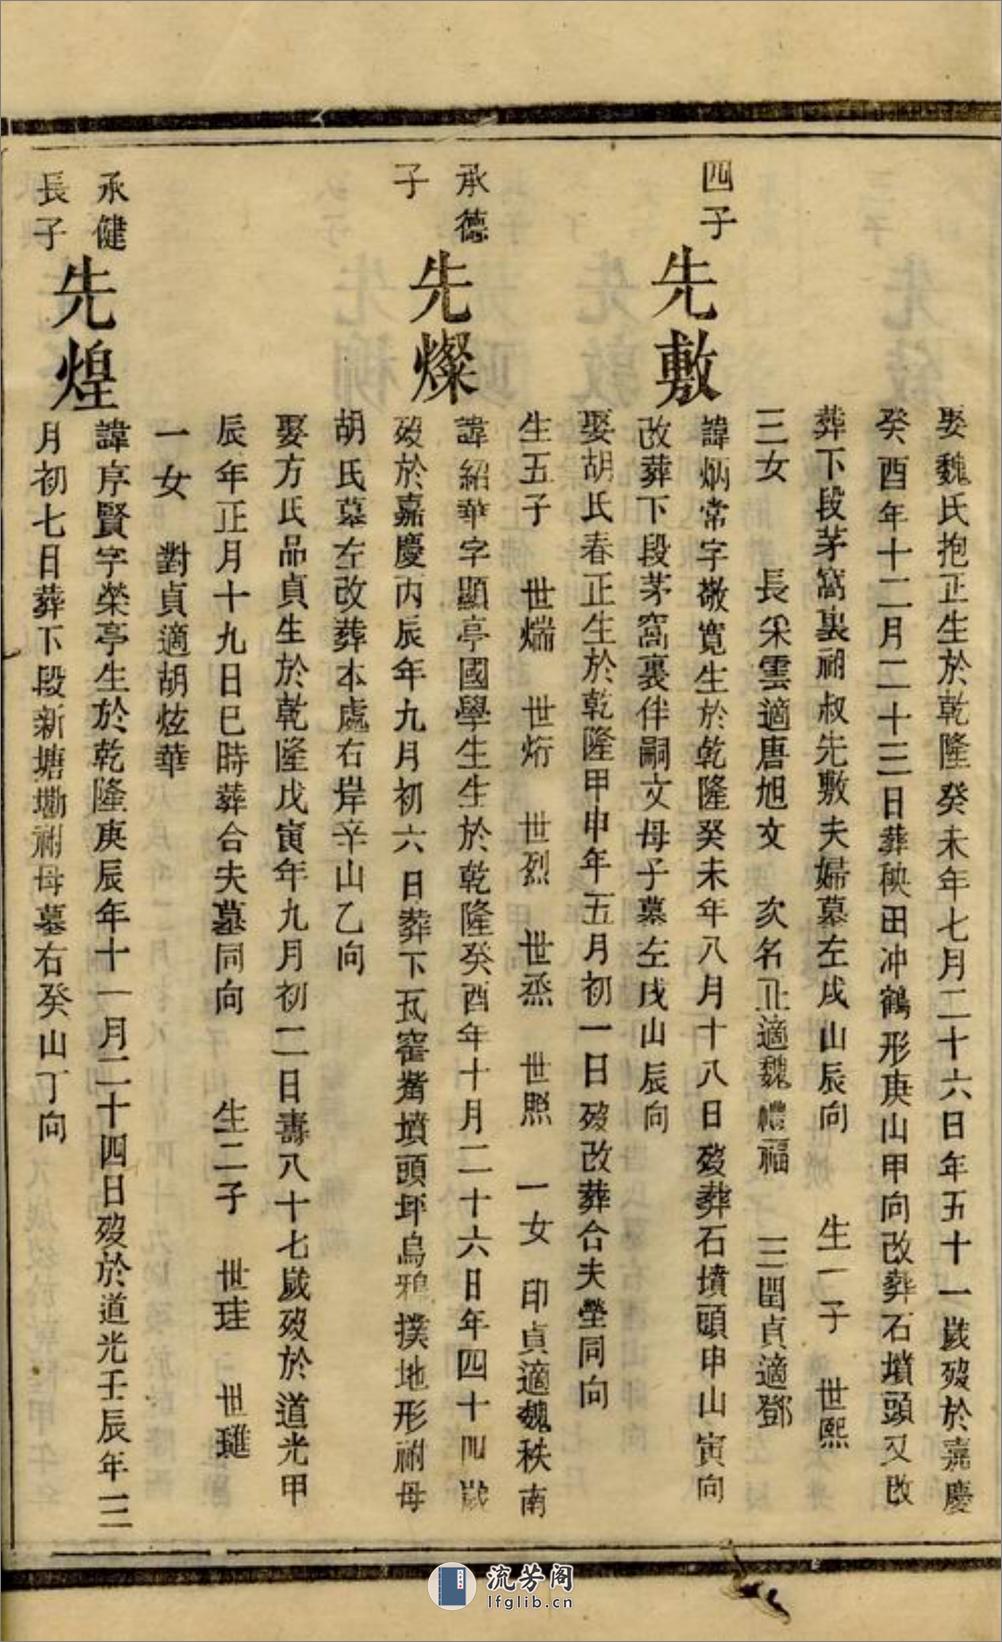 娶魏氏抱正生於乾隆癸未年七月二十六日年五十一歲歿於嘉慶
癸酉年十二月二十三日葬秧田冲鶴形庚山甲向改葬石墳頭又改
葬下段茅窩裏祔叔先敷夫婦墓左戌山辰向 生一子 世熙
三女 長采雲適唐旭文 次名正適魏禮福 三閨貞適鄧
四子
先敷
諱炳常字敬寬生於乾隆癸未年八月十八日歿葬石墳頭申山寅向
改葬下段茅窩裏伴嗣文母子墓左戌山辰向
娶胡氏春正生於乾隆甲申年五月初一日歿改葬合夫塋同向
生五子 世煓 世烆 世烈 世烝 世照 一女 印貞適魏秩南
承德
子
先燦
諱紹華字顯亭國學生生於乾隆癸酉年十月二十六日年四十四歲
歿於嘉慶丙辰年九月初六日葬下瓦窰墳頭坪烏鴉撲地形祔母
胡氏墓左改葬本處右岸辛山乙向
娶方氏品貞生於乾隆戊寅年九月初二日壽八十七歲歿於道光甲
辰年正月十九日巳時葬合夫墓同向 生二子 世珪 世璡
一女 對貞適胡炫華
承健
長子
先煌
諱序賢字榮亭生於乾隆庚辰年十一月二十四日歿於道光壬辰年三
月初七日葬下段新塘墈祔母墓右癸山丁向
流芳阁
lfglib.cn